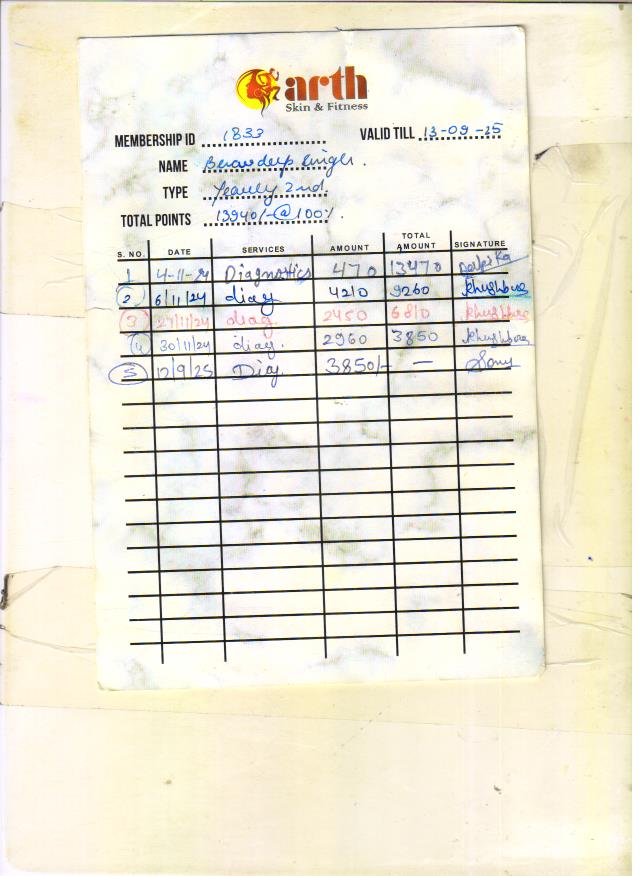 arth
Skin & Fitness
MEMBERSHIP ID 1833 VALID TILL 13-09-25
NAME Singh.
TYPE Yearly 2nd.
TOTAL POINTS 13940/-@100%.
S. NO. DATE SERVICES AMOUNT TOTAL AMOUNT SIGNATURE
1 4-11-24 Diagnostics 470 13470
2 6/11/24 diag 4210 9260 khushboo
3 27/11/24 diag. 2450 6810 khushboo
4 30/11/24 diag. 2960 3850 khushboo
5 12/9/25 Diag. 3850/- — Sony